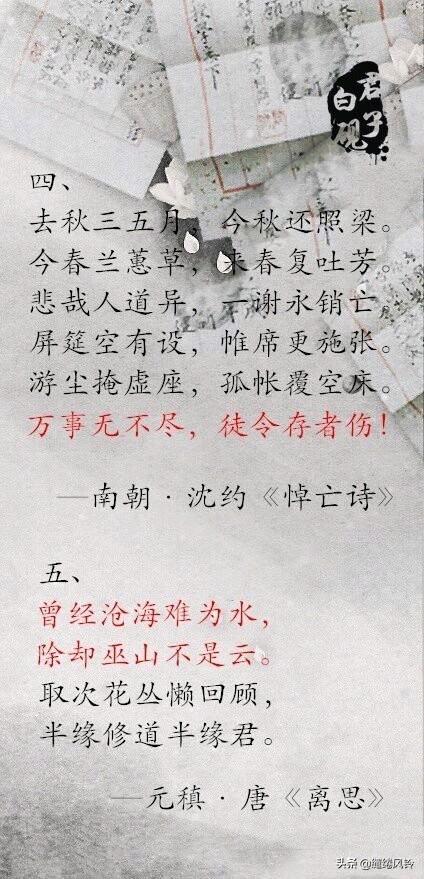 君子
白砚
四、
去秋三五月，今秋还照梁。
今春兰蕙草，来春复吐芳。
悲哉人道异，一谢永销亡
屏筵空有设，帷席更施张。
游尘掩虚座，孤帐覆空床。
万事无不尽，徒令存者伤!
—南朝·沈约《悼亡诗》
五、
曾经沧海难为水，
除却巫山不是云。
取次花丛懒回顾，
半缘修道半缘君。
—元稹·唐《离思》
头条 @缱绻风铃